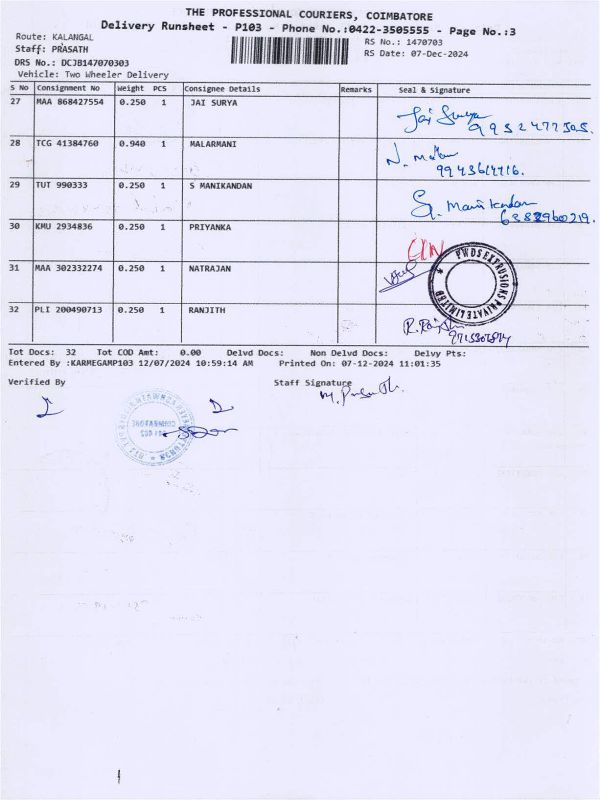 THE PROFESSIONAL COURIERS, COIMBATORE
Delivery Runsheet - P103 - Phone No.:0422-3505555 - Page No.:3
Route: KALANGAL
RS No.: 1470703
Staff: PRASATH
RS Date: 07-Dec-2024
DRS No.: DCJB147070303
Vehicle: Two Wheeler Delivery
S No Consignment No Weight PCS Consignee Details Remarks Seal & Signature
27 MAA 868427554 0.250 1 JAI SURYA Jai Surya
9952477505.
28 TCG 41384760 0.940 1 MALARMANI N. Malar
9943614716.
29 TUT 990333 0.250 1 S MANIKANDAN S. Manikandan
6382960219.
30 KMU 2934836 0.250 1 PRIYANKA
PWDS EXTRUSIONS PRIVATE LIMITED
31 MAA 302332274 0.250 1 NATRAJAN
32 PLI 200490713 0.250 1 RANJITH
Tot Docs: 32 Tot COD Amt: 0.00 Delvd Docs: Non Delvd Docs: Delvy Pts:
Entered By :KARMEGAMP103 12/07/2024 10:59:14 AM Printed On: 07-12-2024 11:01:35
Verified By Staff Signature